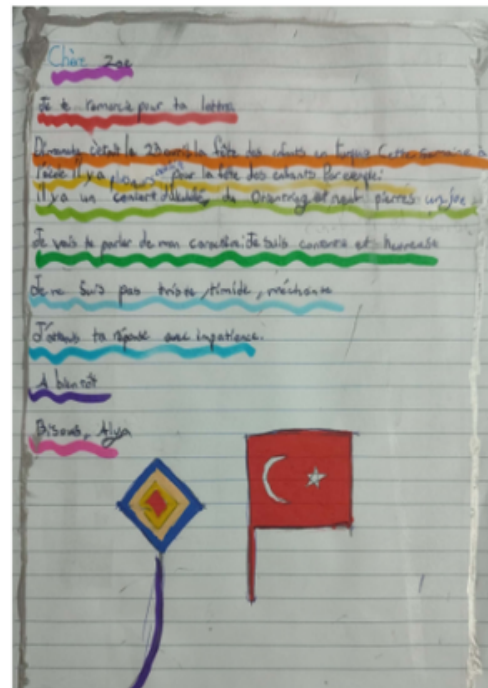 Chère Zoé
Je te remercie pour ta lettre
Dimanche c'était le 23 avril la fête des enfants en Turquie Cette semaine à
l'école il y a pour la fête des enfants Par exemple:
Il y a un concert d'ukulélé, du et neuf pierres un jeu
Je vais te parler de mon caractère: Je suis et heureuse
Je ne suis pas triste, timide, méchante
J'attends ta réponse avec impatience.
A bientôt
Bisous, Alya